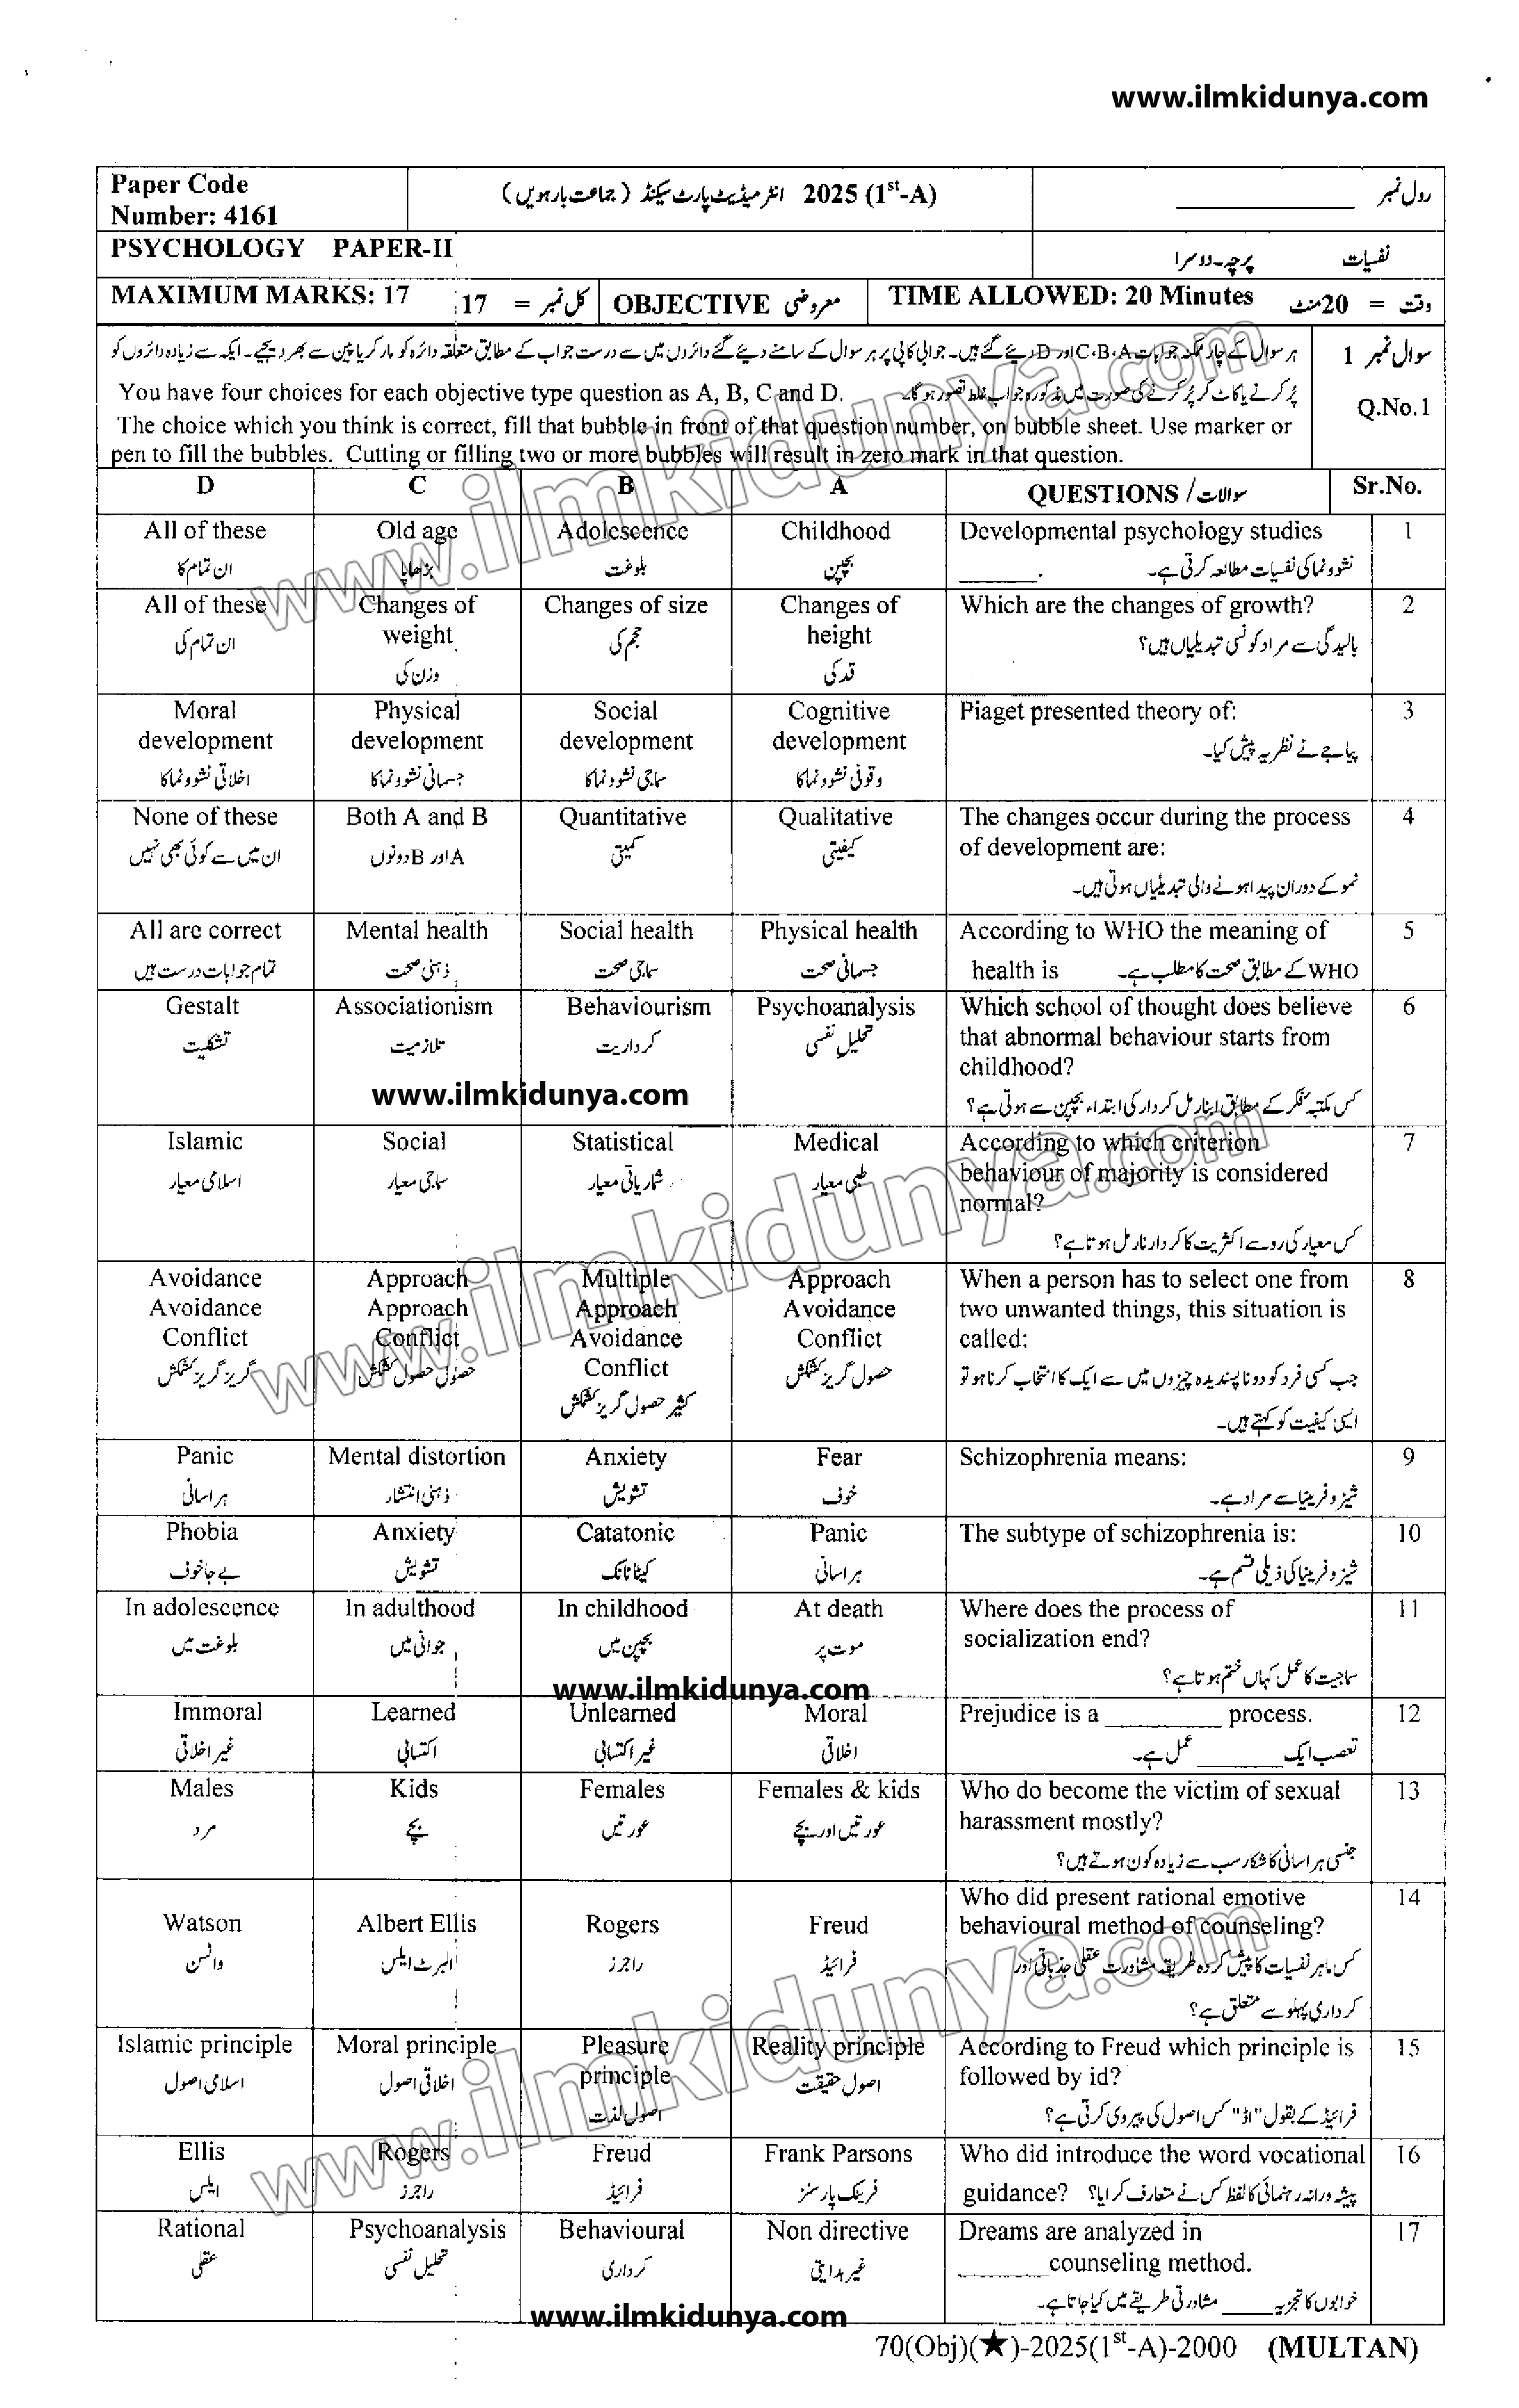 www.ilmkidunya.com
Paper Code
Number: 4161
2025 (1st-A) انٹرمیڈیٹ پارٹ سیکنڈ (جماعت بارہویں)
رول نمبر ____________
PSYCHOLOGY PAPER-II
نفسیات پرچہ-دوسرا
MAXIMUM MARKS: 17
کل نمبر = 17
OBJECTIVE معروضی
TIME ALLOWED: 20 Minutes
وقت = 20 منٹ
سوال نمبر 1
Q.No.1
ہر سوال کے چار ممکنہ جوابات A،B،C اور D دیئے گئے ہیں۔ جوابی کاپی پر ہر سوال کے سامنے دیئے گئے دائروں میں سے درست جواب کے مطابق متعلقہ دائرہ کو مارکر یا پین سے بھر دیجیے۔ ایک سے زیادہ دائروں کو
پُر کرنے یا کاٹ کر پُر کرنے کی صورت میں مذکورہ جواب غلط تصور ہو گا۔
You have four choices for each objective type question as A, B, C and D.
The choice which you think is correct, fill that bubble in front of that question number, on bubble sheet. Use marker or
pen to fill the bubbles. Cutting or filling two or more bubbles will result in zero mark in that question.
D C B A QUESTIONS / سوالات Sr.No.
All of these Old age Adolescence Childhood Developmental psychology studies 1
ان تمام کا بڑھاپا بلوغت بچپن ______. نشوونما کی نفسیات مطالعہ کرتی ہے۔
All of these Changes of Changes of size Changes of Which are the changes of growth? 2
weight height
ان تمام کی وزن کی حجم کی قد کی بالیدگی سے مراد کونسی تبدیلیاں ہیں؟
Moral Physical Social Cognitive Piaget presented theory of: 3
development development development development
اخلاقی نشوونما کا جسمانی نشوونما کا سماجی نشوونما کا وقوفی نشوونما کا پیاجے نے نظریہ پیش کیا۔
None of these Both A and B Quantitative Qualitative The changes occur during the process 4
of development are:
ان میں سے کوئی بھی نہیں A اور B دونوں کمیتی کیفیتی نمو کے دوران پیدا ہونے والی تبدیلیاں ہوتی ہیں۔
All are correct Mental health Social health Physical health According to WHO the meaning of 5
تمام جوابات درست ہیں ذہنی صحت سماجی صحت جسمانی صحت health is WHO کے مطابق صحت کا مطلب ہے۔
Gestalt Associationism Behaviourism Psychoanalysis Which school of thought does believe 6
that abnormal behaviour starts from
childhood?
تشکلیت تلازمیت کرداریت تحلیل نفسی کس مکتبہ فکر کے مطابق ابنارمل کردار کی ابتداء بچپن سے ہوتی ہے؟
www.ilmkidunya.com
Islamic Social Statistical Medical According to which criterion 7
behaviour of majority is considered
normal?
اسلامی معیار سماجی معیار شماریاتی معیار طبی معیار کس معیار کی رو سے اکثریت کا کردار نارمل ہوتا ہے؟
Avoidance Approach Multiple Approach When a person has to select one from 8
Avoidance Approach Approach Avoidance two unwanted things, this situation is
Conflict Conflict Avoidance Conflict called:
Conflict
گریز گریز کشمکش حصول حصول کشمکش کثیر حصول گریز کشمکش حصول گریز کشمکش جب کسی فرد کو دو ناپسندیدہ چیزوں میں سے ایک کا انتخاب کرنا ہو تو
ایسی کیفیت کو کہتے ہیں۔
Panic Mental distortion Anxiety Fear Schizophrenia means: 9
ہراسانی ذہنی انتشار تشویش خوف شیزوفرینیا سے مراد ہے۔
Phobia Anxiety Catatonic Panic The subtype of schizophrenia is: 10
بے جا خوف تشویش کیٹاٹانک ہراسانی شیزوفرینیا کی ذیلی قسم ہے۔
In adolescence In adulthood In childhood At death Where does the process of 11
socialization end?
بلوغت میں جوانی میں بچپن میں موت پر سماجیت کا عمل کہاں ختم ہوتا ہے؟
www.ilmkidunya.com
Immoral Learned Unlearned Moral Prejudice is a _________ process. 12
غیر اخلاقی اکتسابی غیر اکتسابی اخلاقی تعصب ایک ______ عمل ہے۔
Males Kids Females Females & kids Who do become the victim of sexual 13
harassment mostly?
مرد بچے عورتیں عورتیں اور بچے جنسی ہراسانی کا شکار سب سے زیادہ کون ہوتے ہیں؟
Who did present rational emotive 14
Watson Albert Ellis Rogers Freud behavioural method of counseling?
واٹسن البرٹ ایلس راجرز فرائیڈ کس ماہر نفسیات کا پیش کردہ طریقہ مشاورت عقلی جذباتی اور
کرداری پہلو سے متعلق ہے؟
Islamic principle Moral principle Pleasure Reality principle According to Freud which principle is 15
principle followed by id?
اسلامی اصول اخلاقی اصول اصول لذت اصول حقیقت فرائیڈ کے بقول "اڈ" کس اصول کی پیروی کرتی ہے؟
Ellis Rogers Freud Frank Parsons Who did introduce the word vocational 16
ایلس راجرز فرائیڈ فرینک پارسنز guidance? پیشہ ورانہ رہنمائی کا لفظ کس نے متعارف کرایا؟
Rational Psychoanalysis Behavioural Non directive Dreams are analyzed in 17
_______counseling method.
عقلی تحلیل نفسی کرداری غیر ہدایتی خوابوں کا تجزیہ ____ مشاورتی طریقے میں کیا جاتا ہے۔
www.ilmkidunya.com
70(Obj)(★)-2025(1st-A)-2000 (MULTAN)
www.ilmkidunya.com
www.ilmkidunya.com
www.ilmkidunya.com